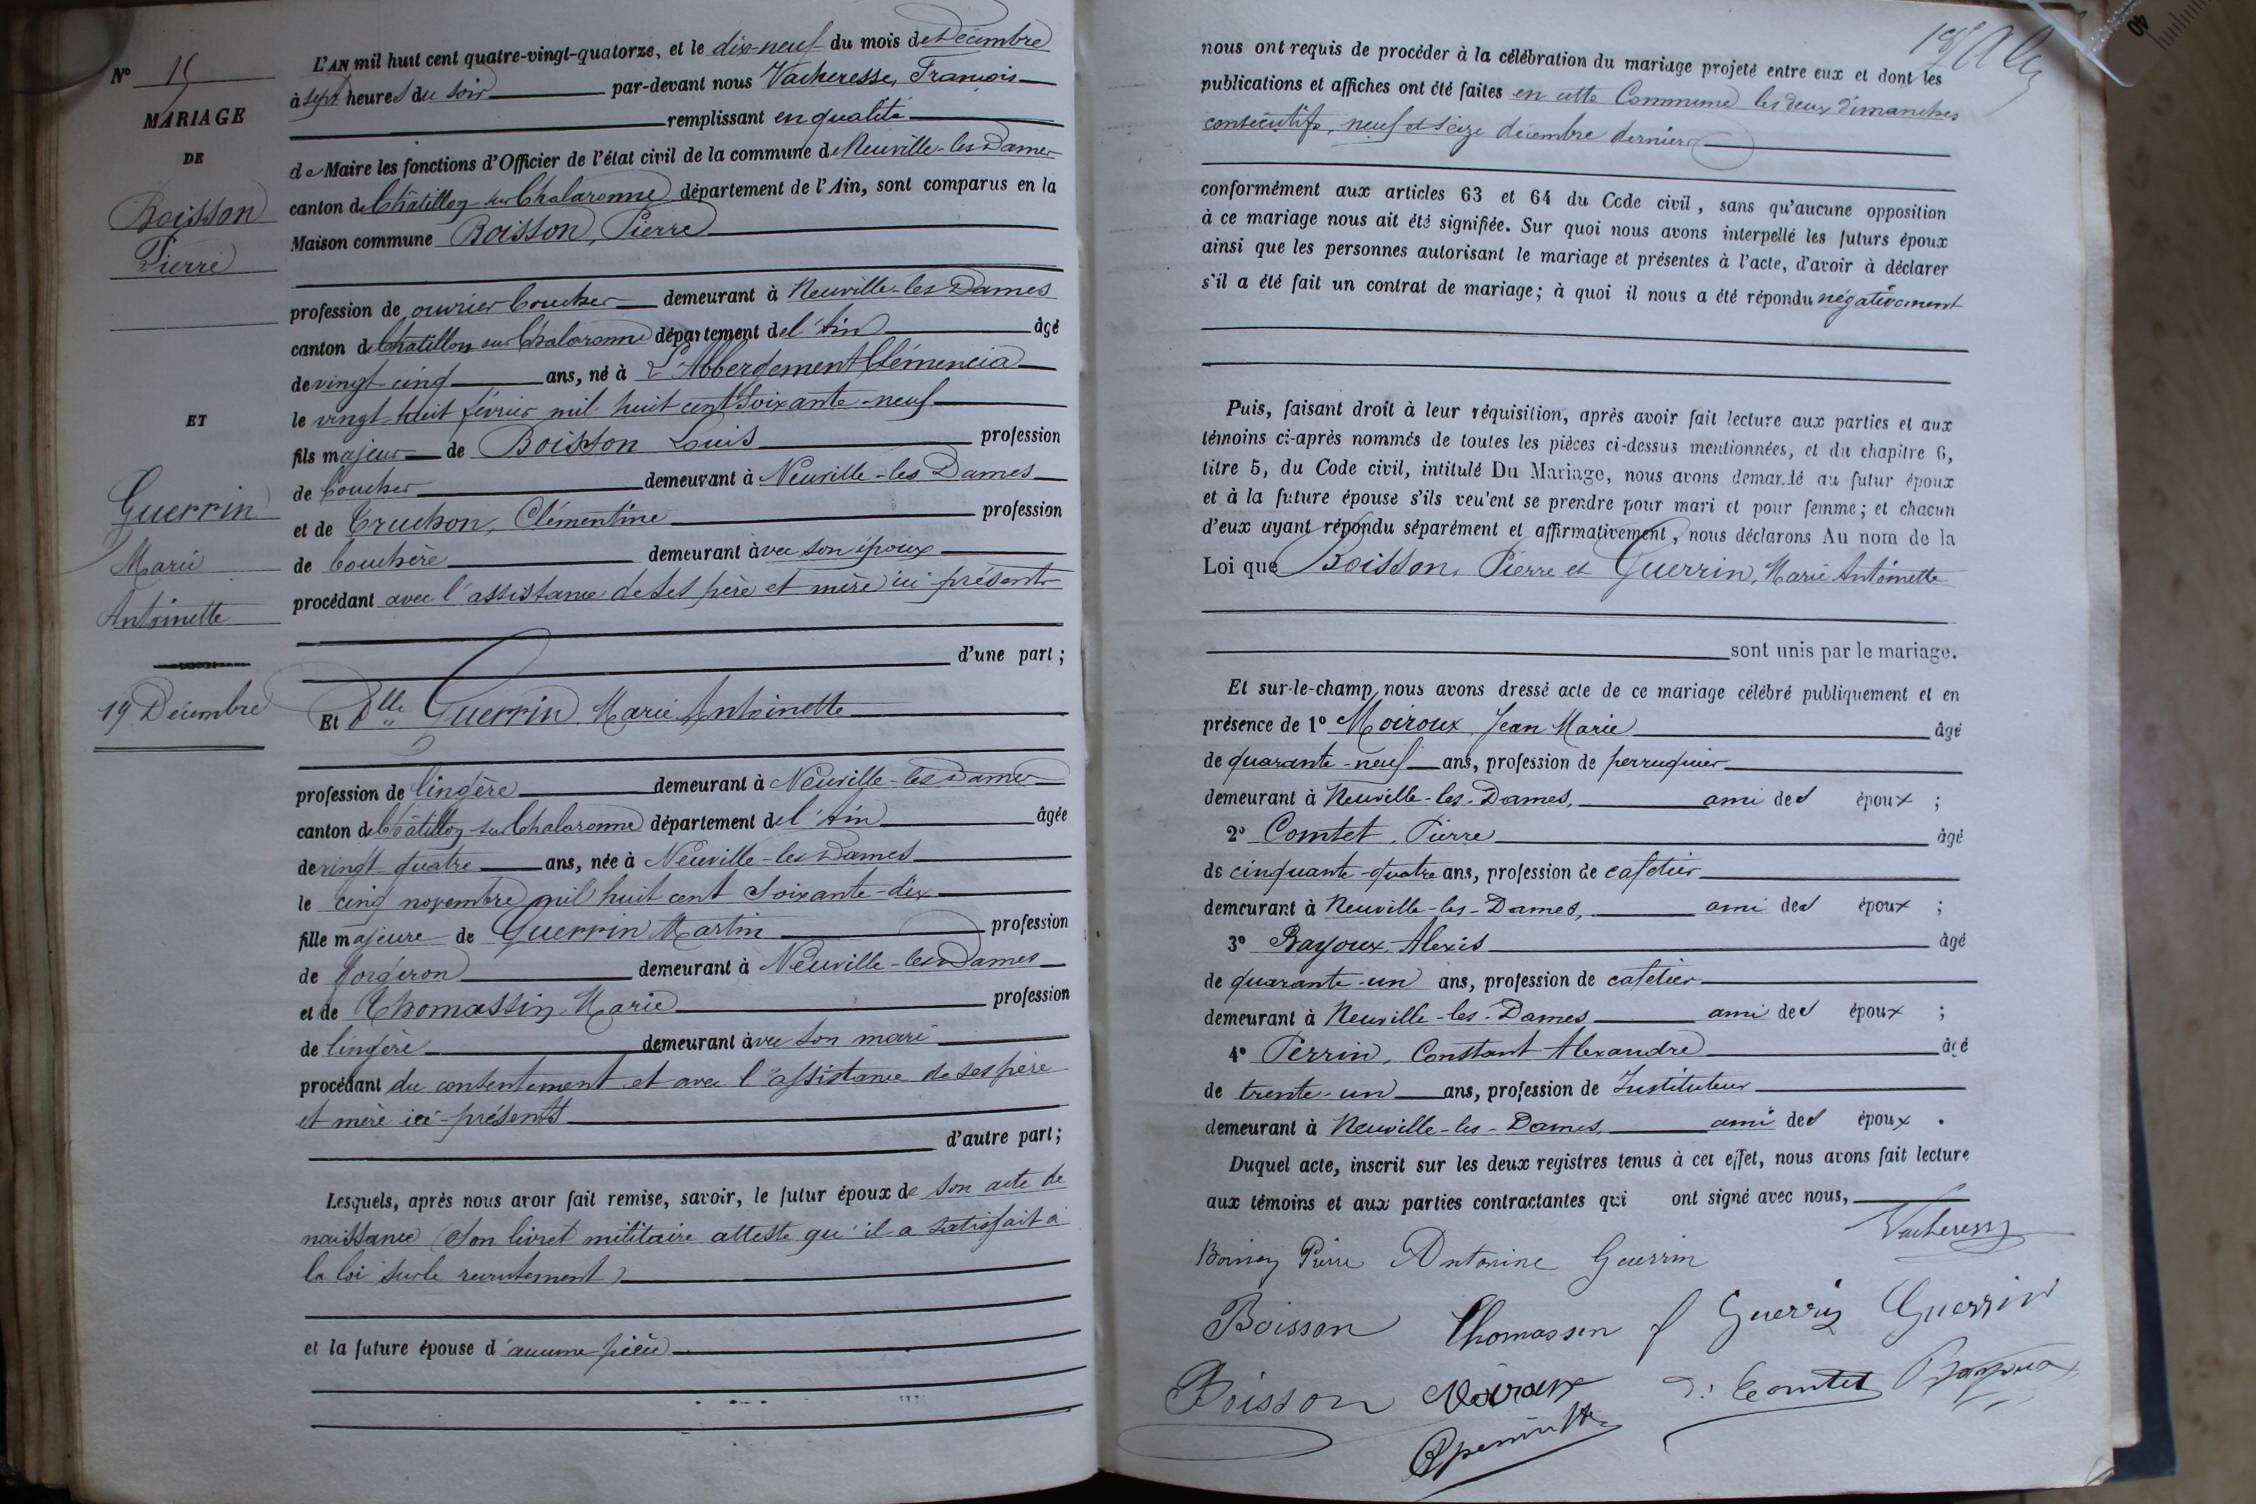 N° 15
MARIAGE
DE
Boisson
Pierre
ET
Guerrin
Marie
Antoinette
19 Décembre
L'AN mil huit cent quatre-vingt-quatorze, et le dix-neuf du mois de Décembre
à sept heures du soir par-devant nous Vacheresse, François
remplissant en qualité
de Maire les fonctions d'Officier de l'état civil de la commune de Neuville-les-Dames
canton de Châtillon-sur-Chalaronne département de l'Ain, sont comparus en la
Maison commune Boisson, Pierre
profession de ouvrier boucher demeurant à Neuville-les-Dames
canton de Châtillon sur Chalaronne département de l'Ain âgé
de vingt-cinq ans, né à L'Abbergement Clémencia
le vingt-huit février mil huit cent soixante-neuf
fils majeur de Boisson Louis profession
de boucher demeurant à Neuville-les Dames
et de Truchon, Clémentine profession
de bouchère demeurant avec son époux
procédant avec l'assistance de ses père et mère ici présents
d'une part ;
Et Dlle Guerrin, Marie Antoinette
profession de lingère demeurant à Neuville-les-Dames
canton de Châtillon-sur Chalaronne département de l'Ain âgée
de vingt-quatre ans, née à Neuville-les-Dames
le cinq novembre mil huit cent soixante-dix
fille majeure de Guerrin Martin profession
de forgeron demeurant à Neuville-les-Dames
et de Thomassin, Marie profession
de lingère demeurant avec son mari
procédant du consentement et avec l'assistance de ses père
et mère ici-présents
d'autre part ;
Lesquels, après nous avoir fait remise, savoir, le futur époux de son acte de
naissance (son livret militaire atteste qu'il a satisfait à
la loi sur le recrutement)
et la future épouse d'aucune pièce
nous ont requis de procéder à la célébration du mariage projeté entre eux et dont les
publications et affiches ont été faites en cette Commune les deux dimanches
consécutifs, neuf et seize décembre dernier
conformément aux articles 63 et 64 du Code civil, sans qu'aucune opposition
à ce mariage nous ait été signifiée. Sur quoi nous avons interpellé les futurs époux
ainsi que les personnes autorisant le mariage et présentes à l'acte, d'avoir à déclarer
s'il a été fait un contrat de mariage ; à quoi il nous a été répondu négativement
Puis, faisant droit à leur réquisition, après avoir fait lecture aux parties et aux
témoins ci-après nommés de toutes les pièces ci-dessus mentionnées, et du chapitre 6,
titre 5, du Code civil, intitulé Du Mariage, nous avons demandé au futur époux
et à la future épouse s'ils veulent se prendre pour mari et pour femme ; et chacun
d'eux ayant répondu séparément et affirmativement, nous déclarons Au nom de la
Loi que Boisson, Pierre et Guerrin, Marie Antoinette
sont unis par le mariage.
Et sur-le-champ nous avons dressé acte de ce mariage célébré publiquement et en
présence de 1° Moiroux, Jean Marie âgé
de quarante-neuf ans, profession de perruquier
demeurant à Neuville-les-Dames, ami des époux ;
2° Comtet, Pierre âgé
de cinquante-quatre ans, profession de cafetier
demeurant à Neuville-les-Dames, ami des époux ;
3° Bayoux, Alexis âgé
de quarante-un ans, profession de cafetier
demeurant à Neuville-les-Dames ami des époux ;
4° Perrin, Constant Alexandre âgé
de trente-un ans, profession de Instituteur
demeurant à Neuville-les-Dames, ami des époux .
Duquel acte, inscrit sur les deux registres tenus à cet effet, nous avons fait lecture
aux témoins et aux parties contractantes qui ont signé avec nous,
Vacheresse
Boisson Pierre Antonine Guerrin
Boisson Thomassin f Guerrin Guerrin
Boisson Moiroux Comtet Bayoux
40